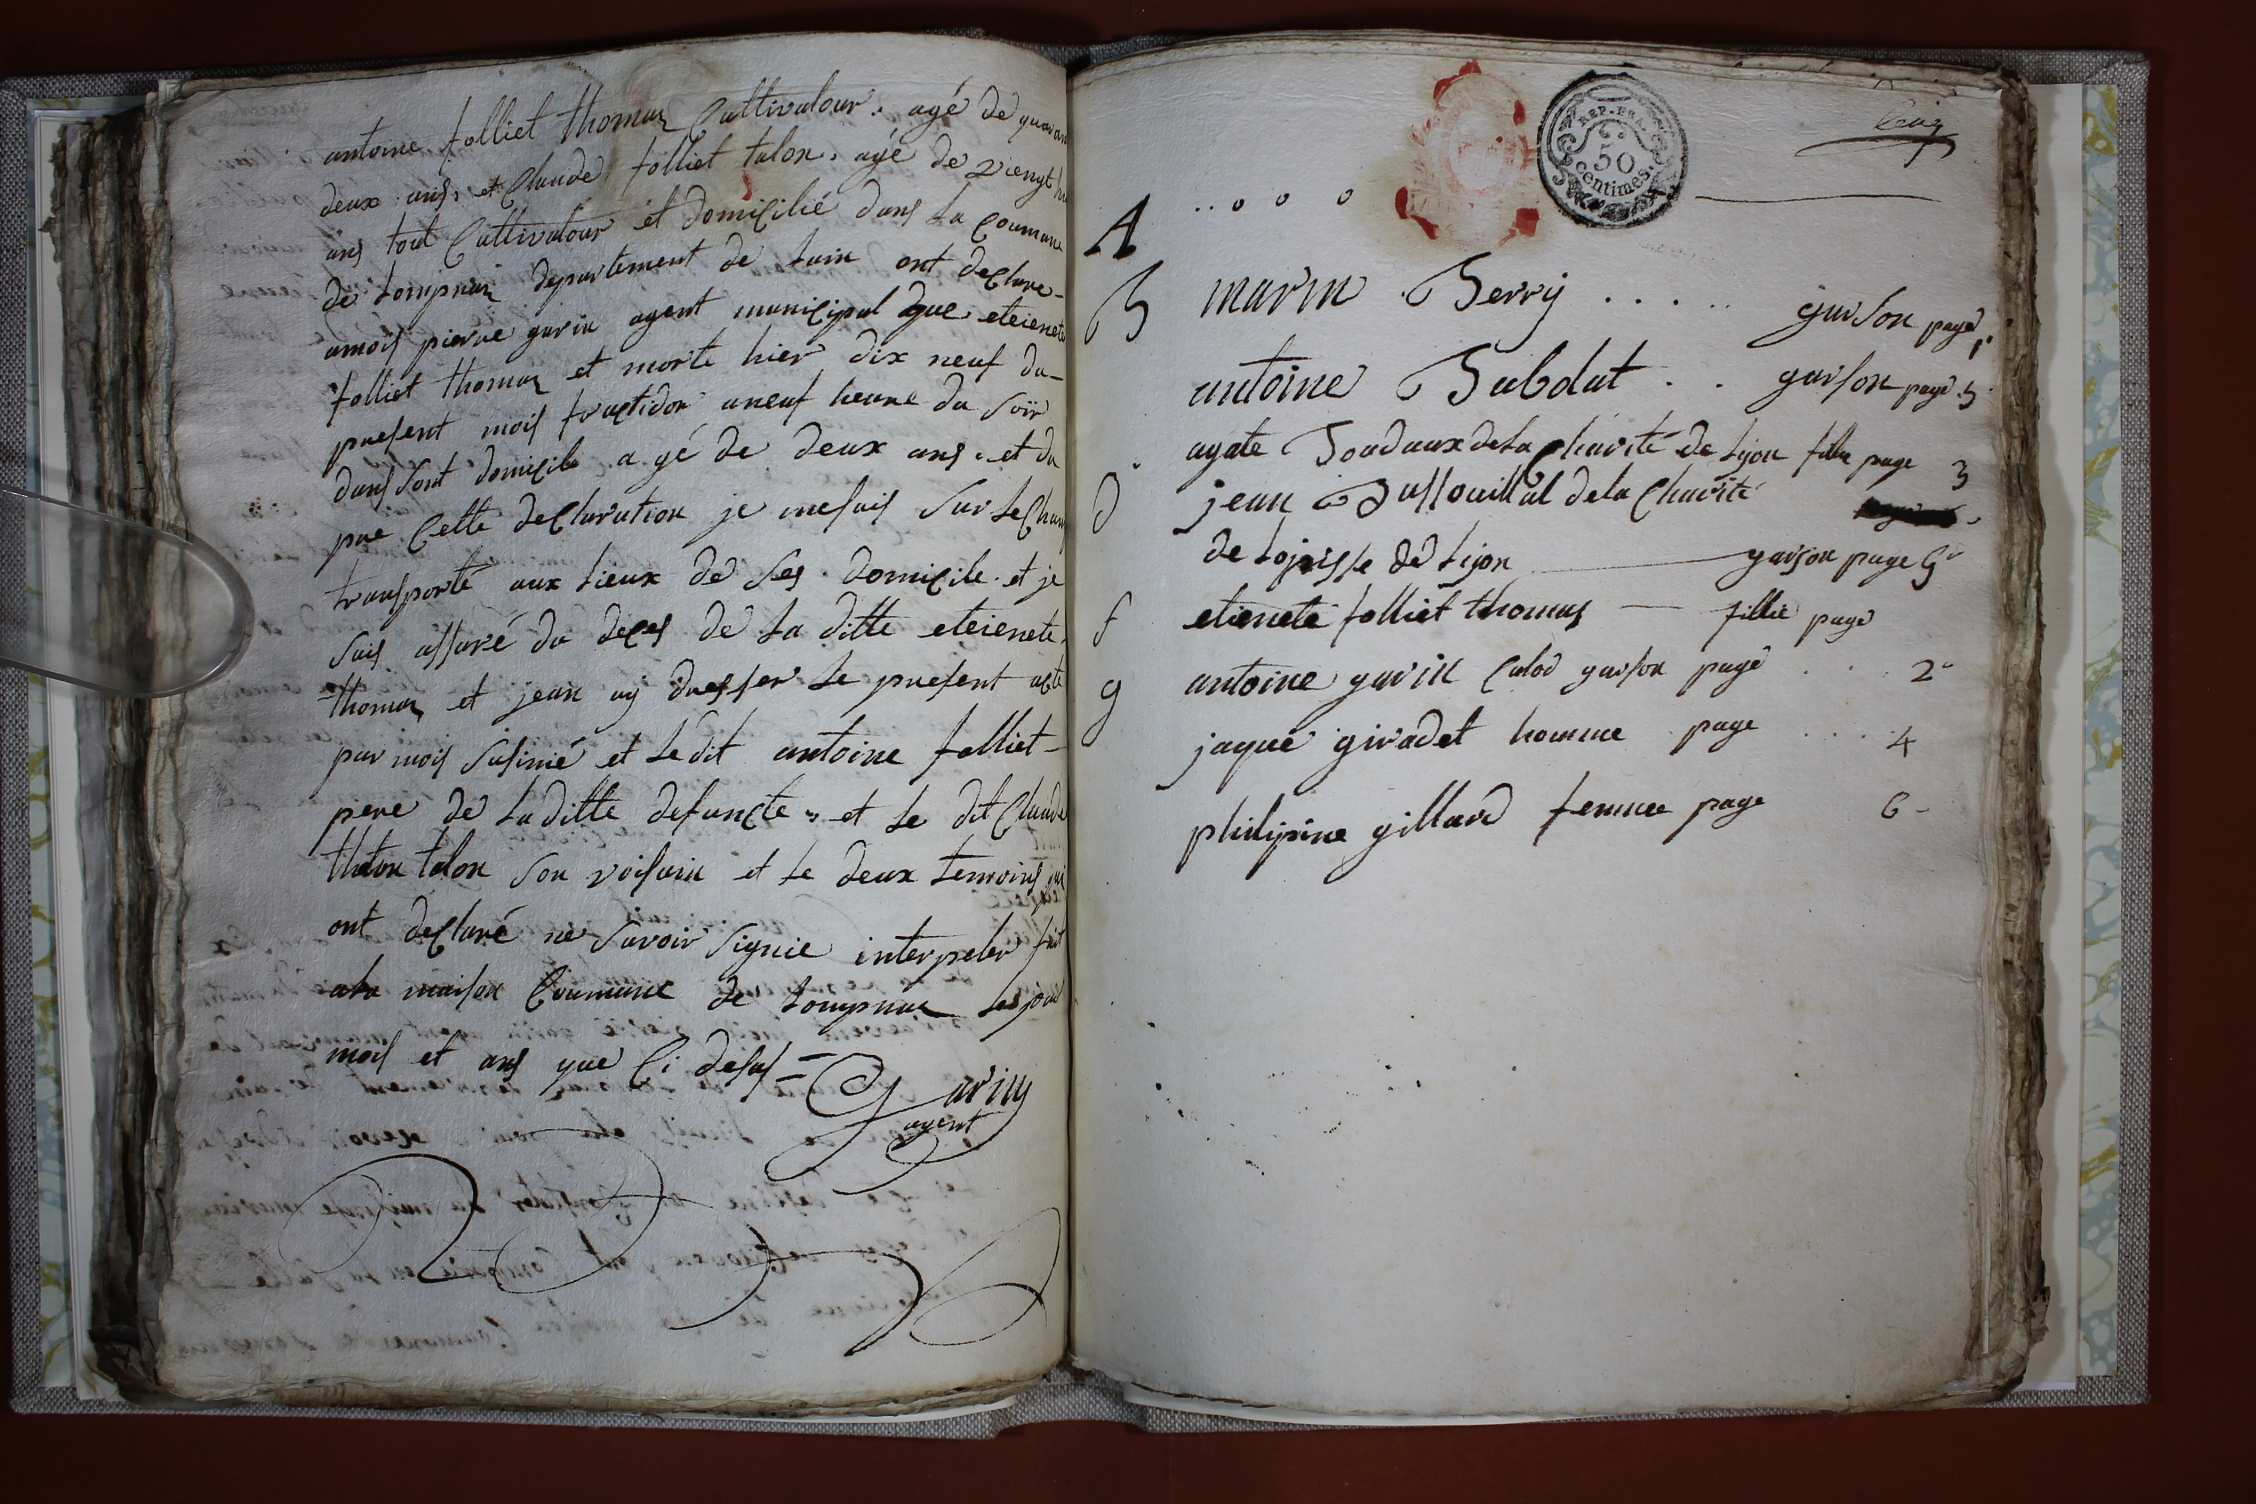 antoine folliet thomas Cultivatour. agé de quaran
deux ans, et Claude folliet talon. agé de viengt
ans tout Cultivatour et domicilié dans la Coumune
de Lompnas departement de Lain ont declare
amois pierre garin agent municipal que eteienete
folliet thomas et morte hier dix neuf du
present mois fructidor aneuf heure du soir
dans sont domicile a gé de deux ans. et du
pre Cette declaration je mesuis sur le Cham
transporté aux Lieux de ses domicile. et je
suis assuré du deces de la ditte eteienete
thomas et jean ay dresser le present acte
par mois susinié et ledit antoine folliet
pere de laditte defuncte et le dit Claude
talon son voisain et le deux temoins qui
ont declaré ne savoir signie interpeler fait
ala maison Coumune de Lompnas les jour
mois et ans que Ci desus = Garin
agent
REP. FRA.
50
centimes
A . . o o o
B marin Berry . . . . . garson page 1
antoine Babdat . . garson page 5
agate Boudaux dela Charité de Lyon fille page 3
d jean Dassouillat dela Charité
de Lopisse de Lyon garson page 5
f etienete folliet thomas — fillie page
g antoine garin Calod garson page . . . 2
jaque giradet homme page . . . . 4
philipine gillard femme page 6